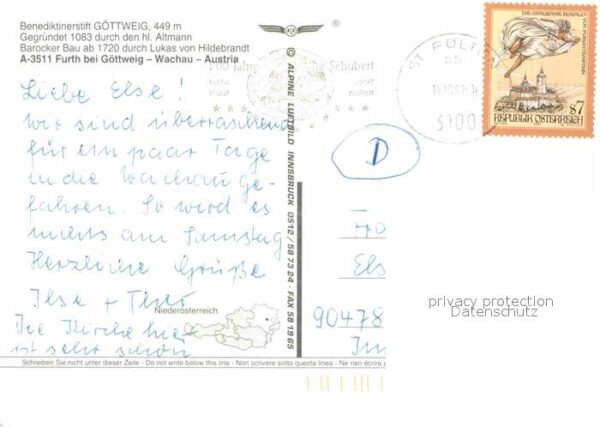 Benediktinerstift GÖTTWEIG, 449 m
Gegründet 1083 durch den hl. Altmann
Barocker Bau ab 1720 durch Lukas von Hildebrandt
A-3511 Furth bei Göttweig – Wachau – Austria
Liebe Else!
Wir sind überraschend
für ein paar Tage
in die Wachau ge-
fahren. So wird es
nichts am Samstag
Herzliche Grüße
Ilse + Theo
Die Kirche hier
ist sehr schön
Niederösterreich
Schreiben Sie nicht unter dieser Zeile - Do not write below this line - Non scrivere sotto questa linea - Ne rien écrire
© ALPINE LUFTBILD INNSBRUCK 0512 / 58 73 24 · FAX 58 19 65
Schubert
ST. PÖLTEN
3100
S7
REPUBLIK ÖSTERREICH
D
Els
90478
privacy protection
Datenschutz